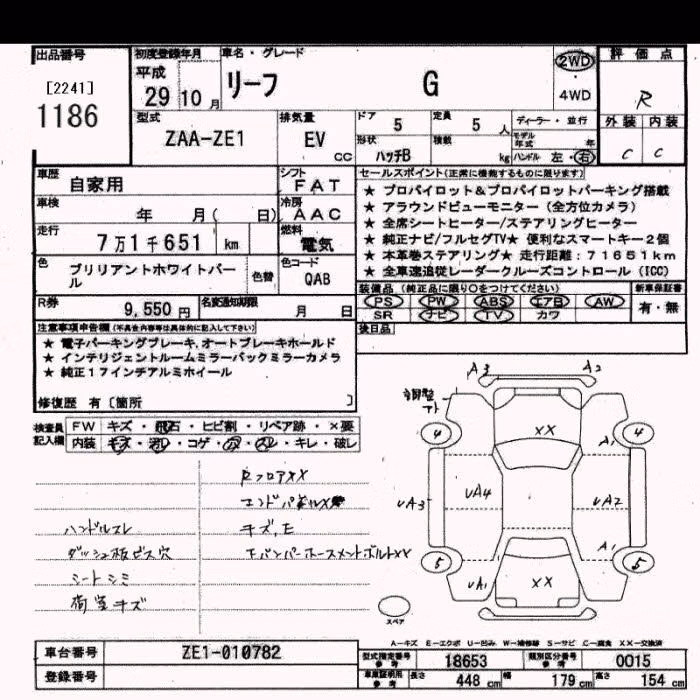 出品番号
[2241]
1186
初度登録年月
平成
29 10 月
車名・グレード
リーフ G
2WD
4WD
評価点
R
外装 内装
C C
型式
ZAA-ZE1
排気量
EV
CC
ドア
5
定員
5 人
形状
ハッチB
積載
kg
ディーラー・並行
モデル
年式 年
ハンドル 左・右
車歴
自家用
シフト
FAT
車検
年 月( 日)
冷房
AAC
走行
7万1千651 km
燃料
電気
色
ブリリアントホワイトパール
色替
色コード
QAB
R券
9,550 円
名変通知期限
月 日
セールスポイント(正常に機能するものに限ります)
★ プロパイロット&プロパイロットパーキング搭載
★ アラウンドビューモニター(全方位カメラ)
★ 全席シートヒーター/ステアリングヒーター
★ 純正ナビ/フルセグTV★ 便利なスマートキー2個
★ 本革巻ステアリング★ 走行距離:71651km
★ 全車速追従レーダークルーズコントロール(ICC)
装備品(純正品に限り○をつけてください)
PS PW ABS エアB AW
SR ナビ TV カワ
新車保証書
有・無
後日品
注意事項申告欄(不具合内容等は具体的に記入して下さい)
★ 電子パーキングブレーキ,オートブレーキホールド
★ インテリジェントルームミラーバックミラーカメラ
★ 純正17インチアルミホイール
修復歴 有[箇所 ]
検査員
記入欄
FW キズ・飛石・ヒビ割・リペア跡・×要
内装 キズ・汚レ・コゲ・穴・スレ・キレ・破レ
RフロアXX
エンドパネルXX
ハンドルスレ
キズ、E
ダッシュ板ビス穴
シートシミ
荷室キズ
A3 A2
4 XX 4
A1
UA3 UA4 UA2
5 A1 5
UA1 XX
スペア
A−キズ E−エクボ U−凹み W−補修跡 S−サビ C−腐食 XX−交換済
車台番号
ZE1-010782
登録番号
型式指定番号
参考
18653
類別区分番号
参考
0015
車庫証明用
参考
長さ 448 cm 幅 179 cm 高さ 154 cm